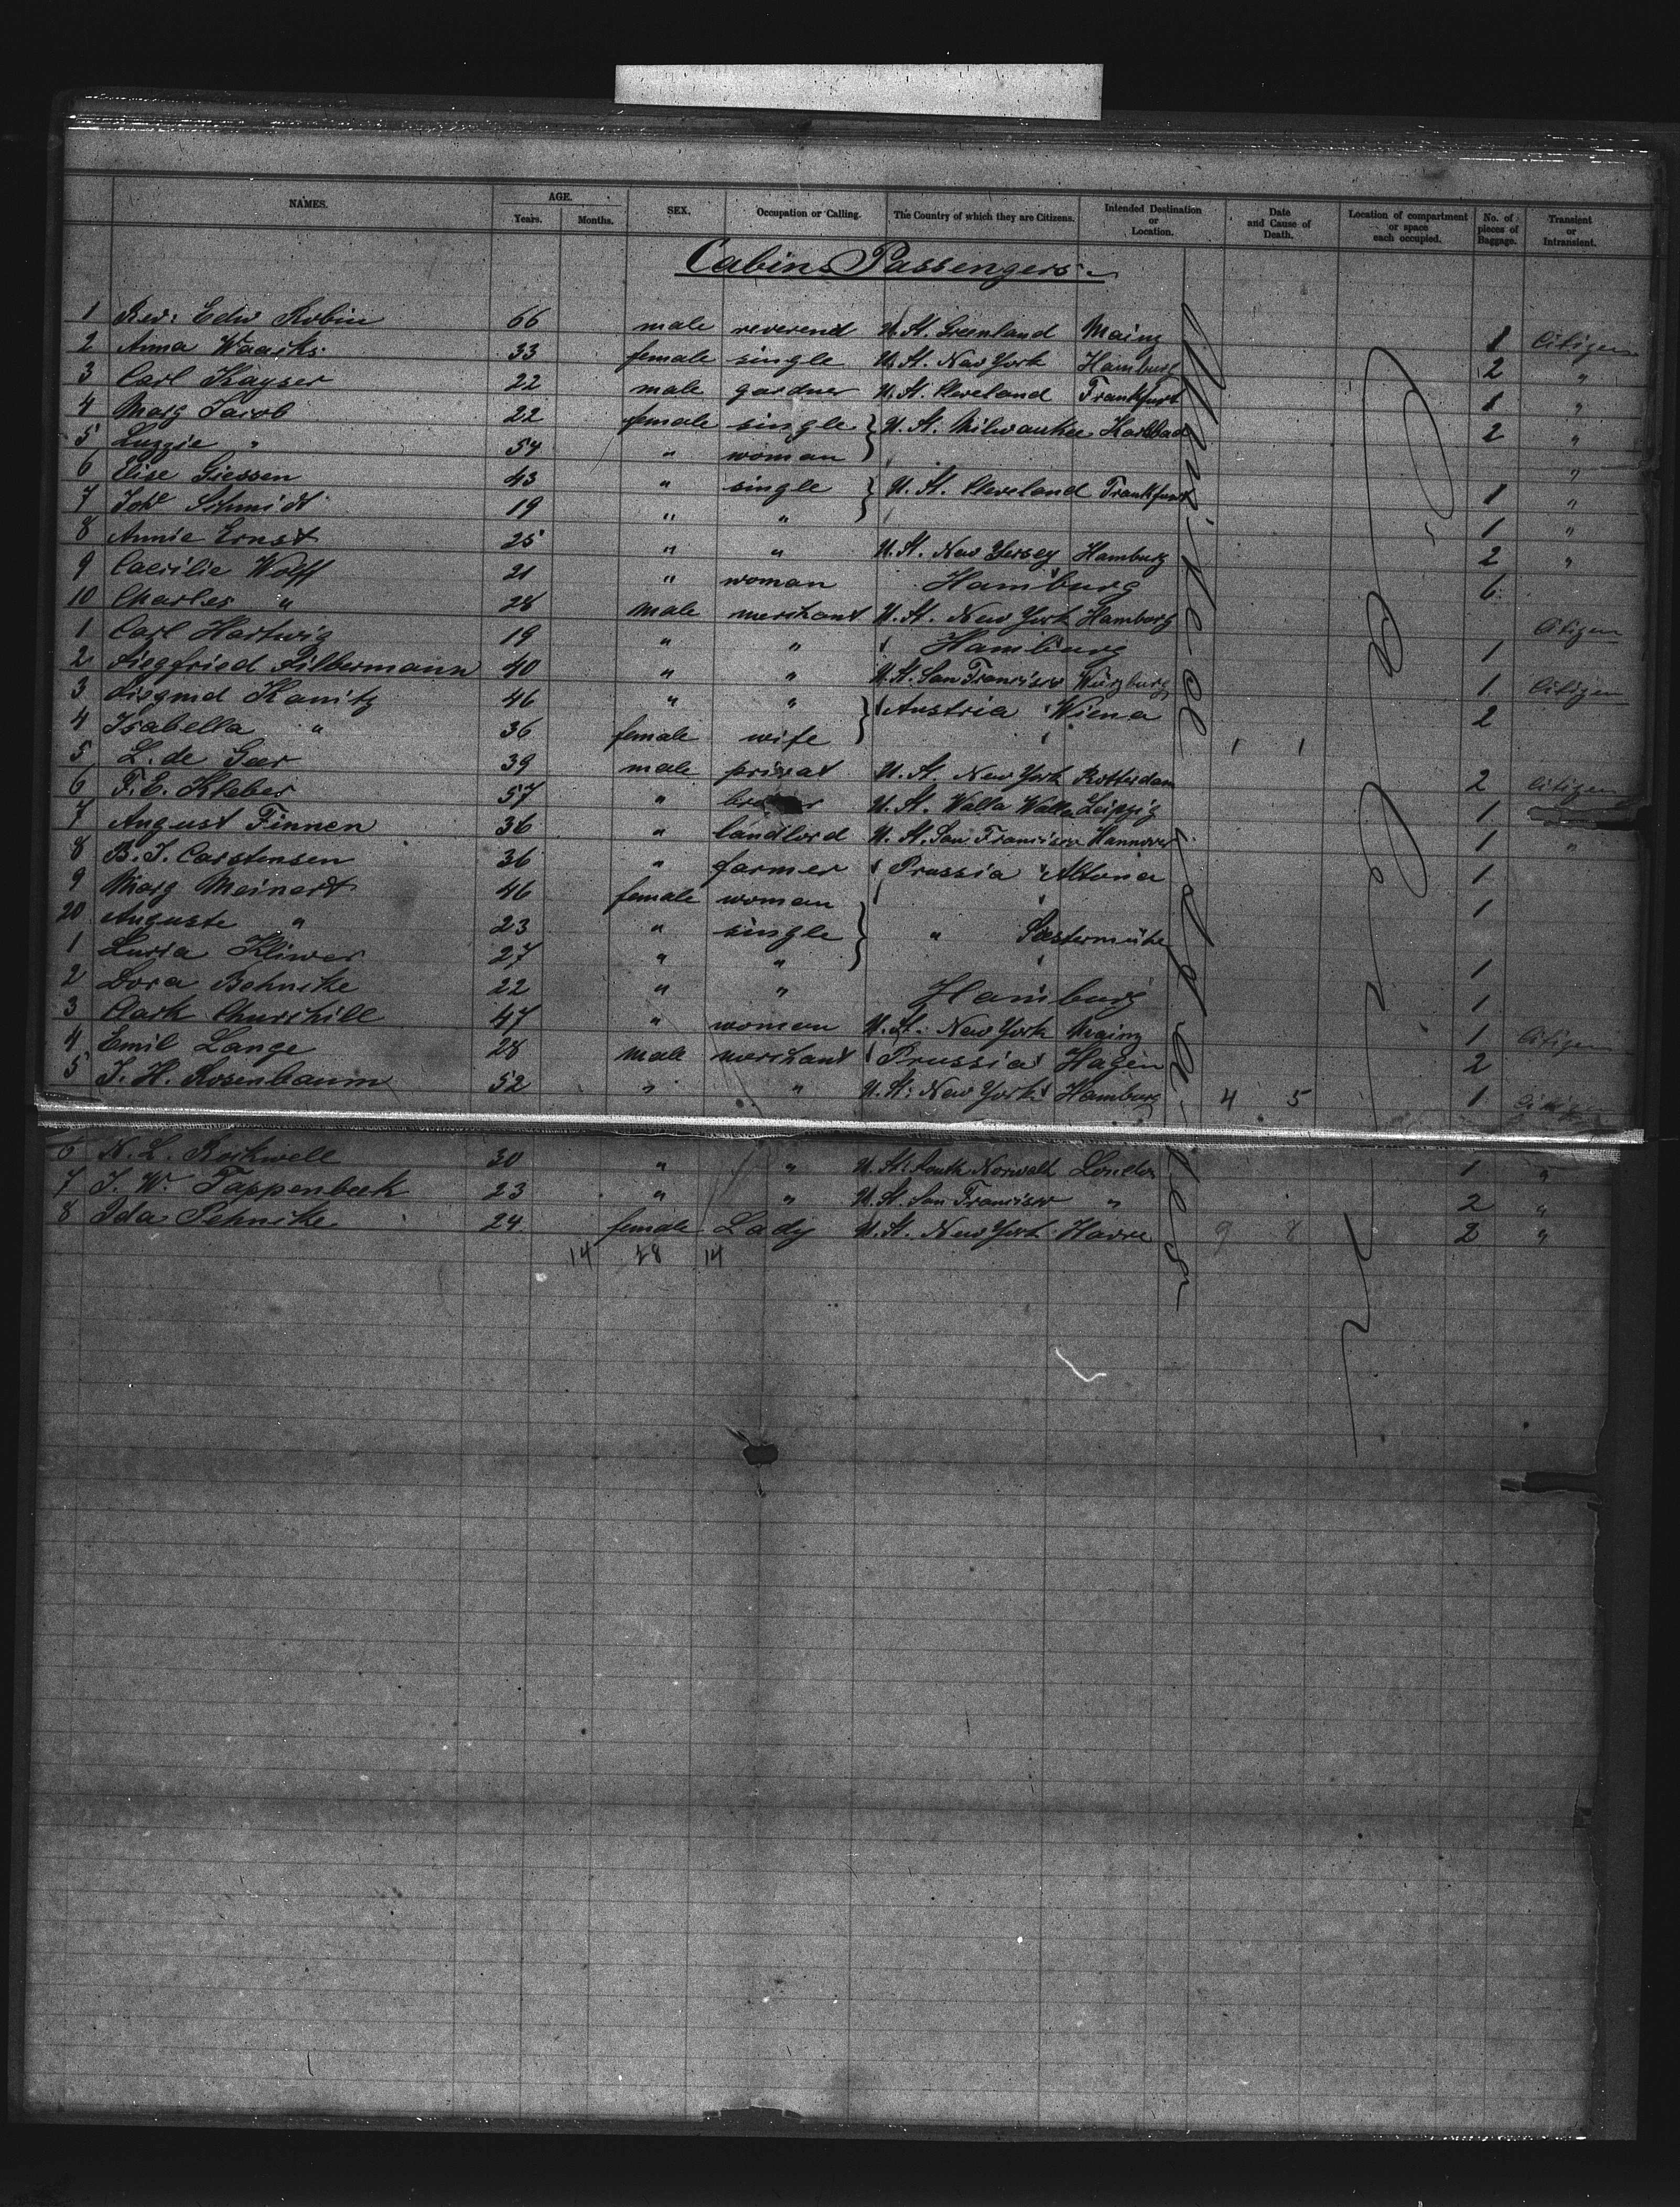 NAMES. AGE. Years. Months. SEX. Occupation or Calling. The Country of which they are Citizens. Intended Destination or Location. Date and Cause of Death. Location of compartment or space each occupied. No. of pieces of Baggage. Transient or Intransient.
Cabins Passengers
1 Rev: Edw Robin 66 male reverend U. St. Greenland Mainz 1 Citizen
2 Anna 33 female single U. St. New York Hamburg 2 "
3 Carl Kayser 22 male gardner U. St. Cleveland Frankfurt 1 "
4 Marg Jacob 22 female single U. St. Milwaukee Karlsbad 2 "
5 Luzzie " 54 " woman "
6 Elise Giessen 43 " single U. St. Cleveland Frankfurt 1 "
7 Schmidt 19 " " 1 "
8 Annie Ernst 25 " " U. St. New Yersey Hamburg 2 "
9 Caecilie Wolff 21 " woman Hamburg 6
10 Charles " 28 male merchant U. St. New York Hamborg Citizen
1 Carl Hartwig 19 " " Hamburg 1
2 Siegfried Silbermann 40 " " U. St. San Francisco Würzburg 1 Citizen
3 Siegmd Kanitz 46 " " Austria Wiena 2
4 Isabella " 36 female wife 1 1
5 L. de Geer 39 male privat U. St. New York Rotterdam 2 Citizen
6 F. E. Kleber 57 " U. St. Walla Walla Leipzig 1
7 August Finnen 36 " landlord U. St. San Francisco Hannover 1 "
8 B. J. Carstensen 36 " farmer Prussia Altona 1
9 Marg Meinert 46 female woman 1
20 Auguste " 23 " single "
1 Kliwer 27 " " 1
2 Dora Behncke 22 " " Hamburg 1
3 Clark Churchill 47 " woman U. St. New York Mainz 1 Citizen
4 Emil Lange 28 male merchant Prussia Hagen 2
5 J. H. Rosenbaum 52 " " U. St: New York Hamburg 4 5 1 Citizen
6 N. L. Rockwell 30 " " U. St: South Norwalk London 1 "
7 J. W. Tappenbeck 23 " " U. St. San Francisco " 2 "
8 Ida Behncke 24 female Lady U. St. New York Havre 9 8 2 "
14 28 14